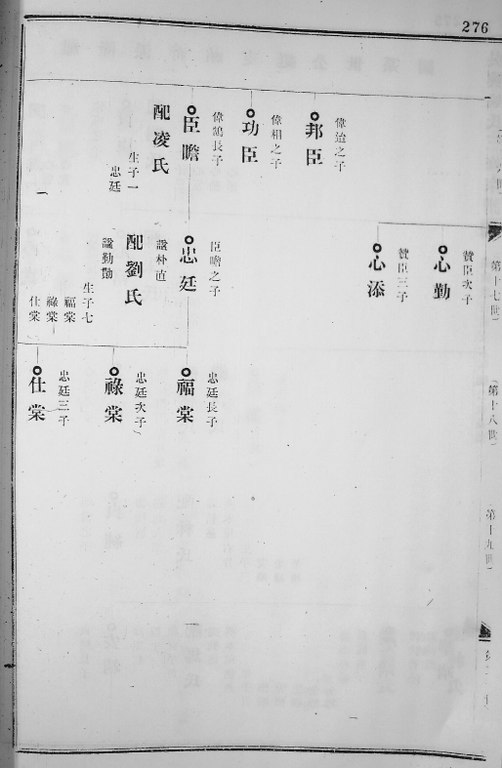 276
邦臣
偉治之子
功臣
偉相之子
臣瞻
偉鵠長子
配凌氏
生子一
忠廷
心勤
贊臣次子
心添
贊臣三子
忠廷
臣瞻之子
諡朴直
配劉氏
諡勤勤
生子七
福棠
祿棠
仕棠
福棠
忠廷長子
祿棠
忠廷次子
仕棠
忠廷三子
第十七世
第十八世
第十九世